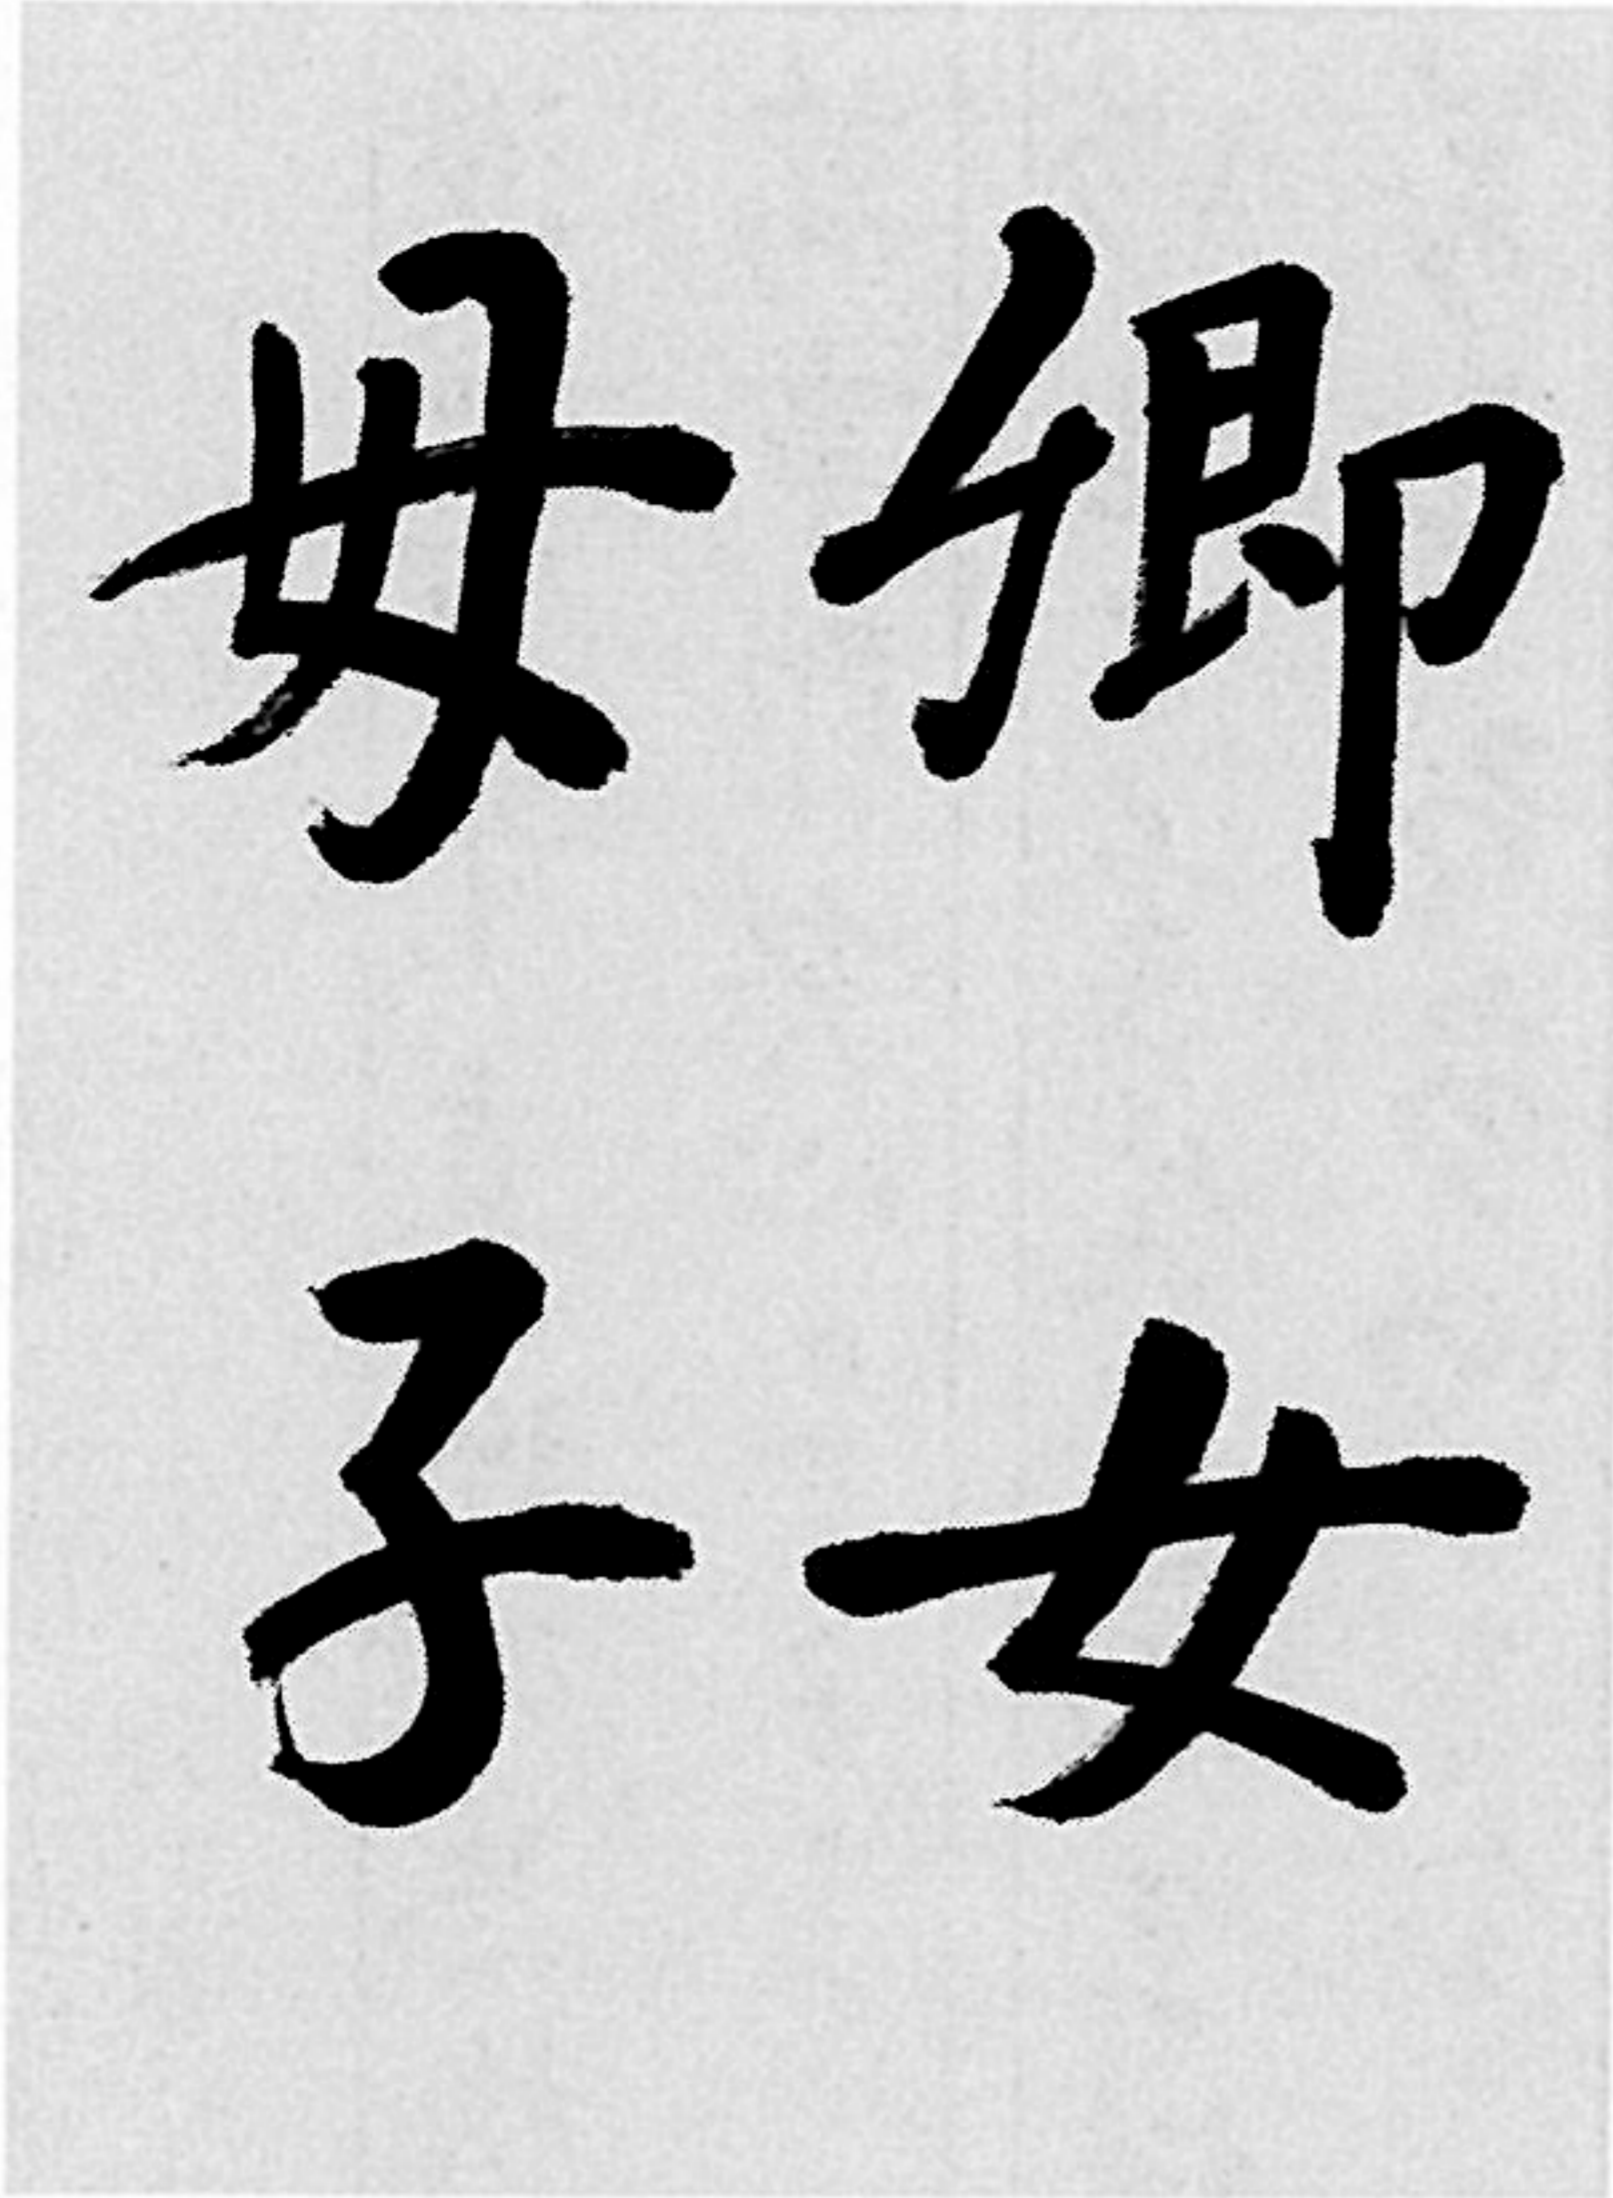 卿女
毋子